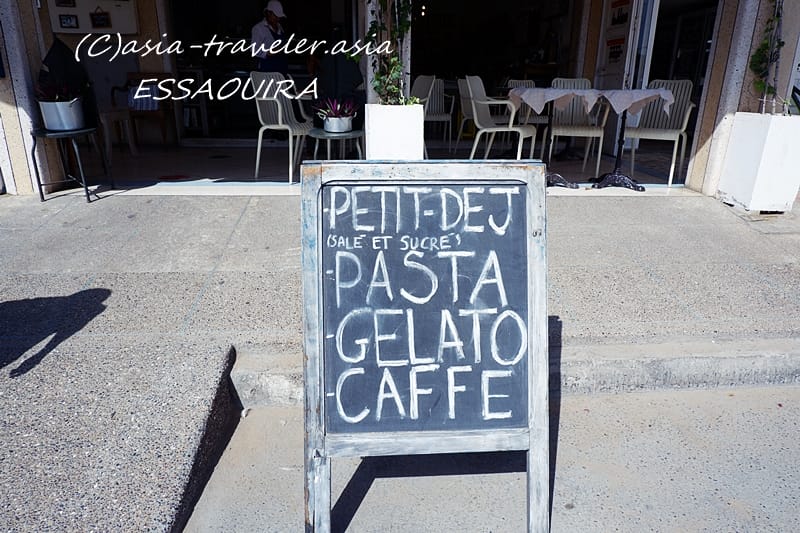 (C)asia-traveler.asia
ESSAOUIRA
-PETIT-DEJ
(SALÉ ET SUCRÉ)
-PASTA
-GELATO
-CAFFE